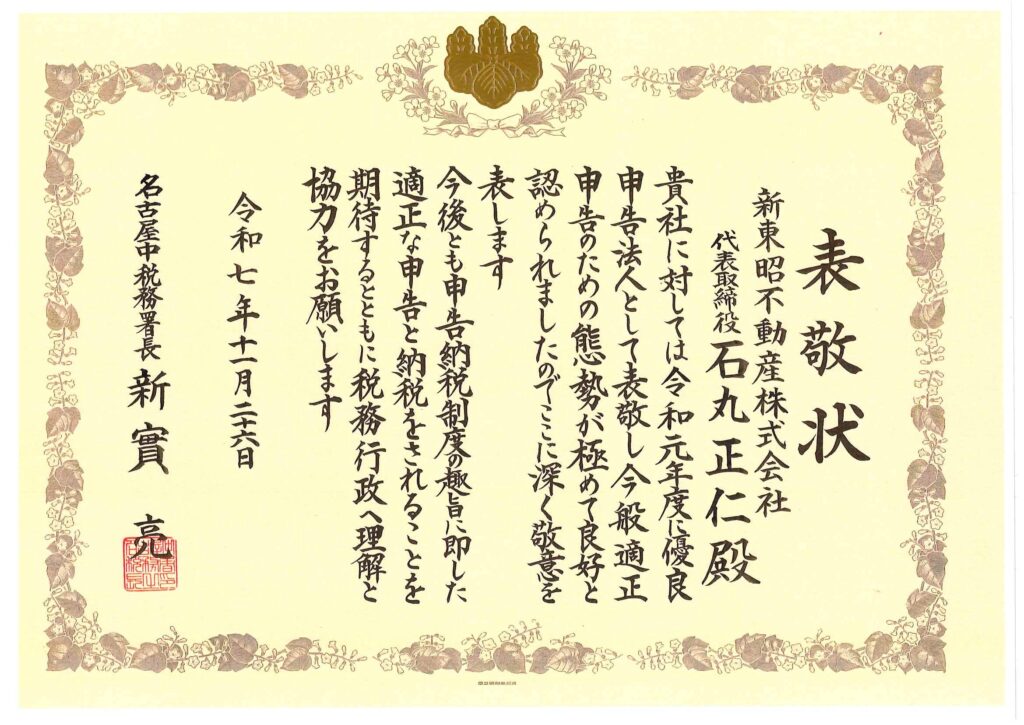 表敬状
新東昭不動産株式会社
代表取締役 石丸正仁殿
貴社に対しては令和元年度に優良
申告法人として表敬し今般適正
申告のための態勢が極めて良好と
認められましたのでここに深く敬意を
表します
今後とも申告納税制度の趣旨に即した
適正な申告と納税をされることを
期待するとともに税務行政へ理解と
協力をお願いします
令和七年十一月二十六日
名古屋中税務署長 新實 亮